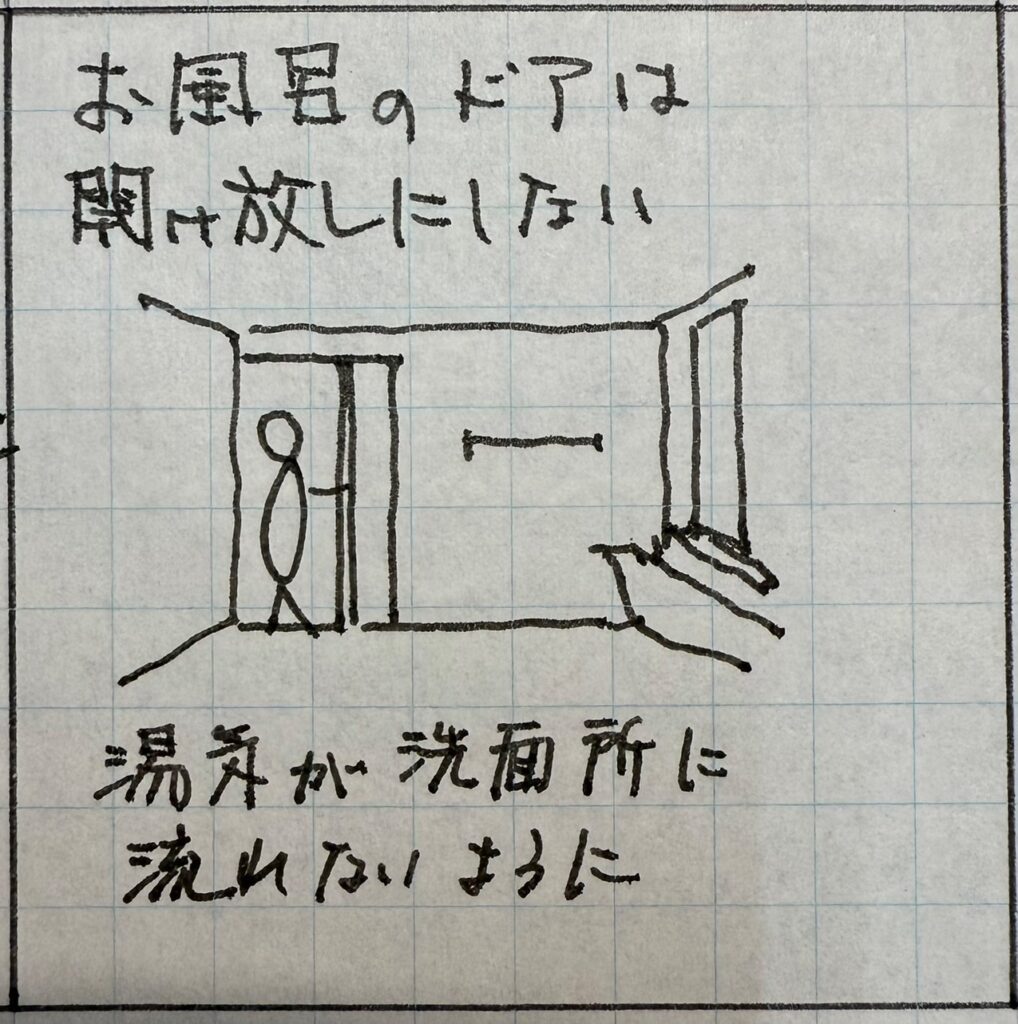 お風呂のドアは
開け放しにしない
湯気が洗面所に
流れないように